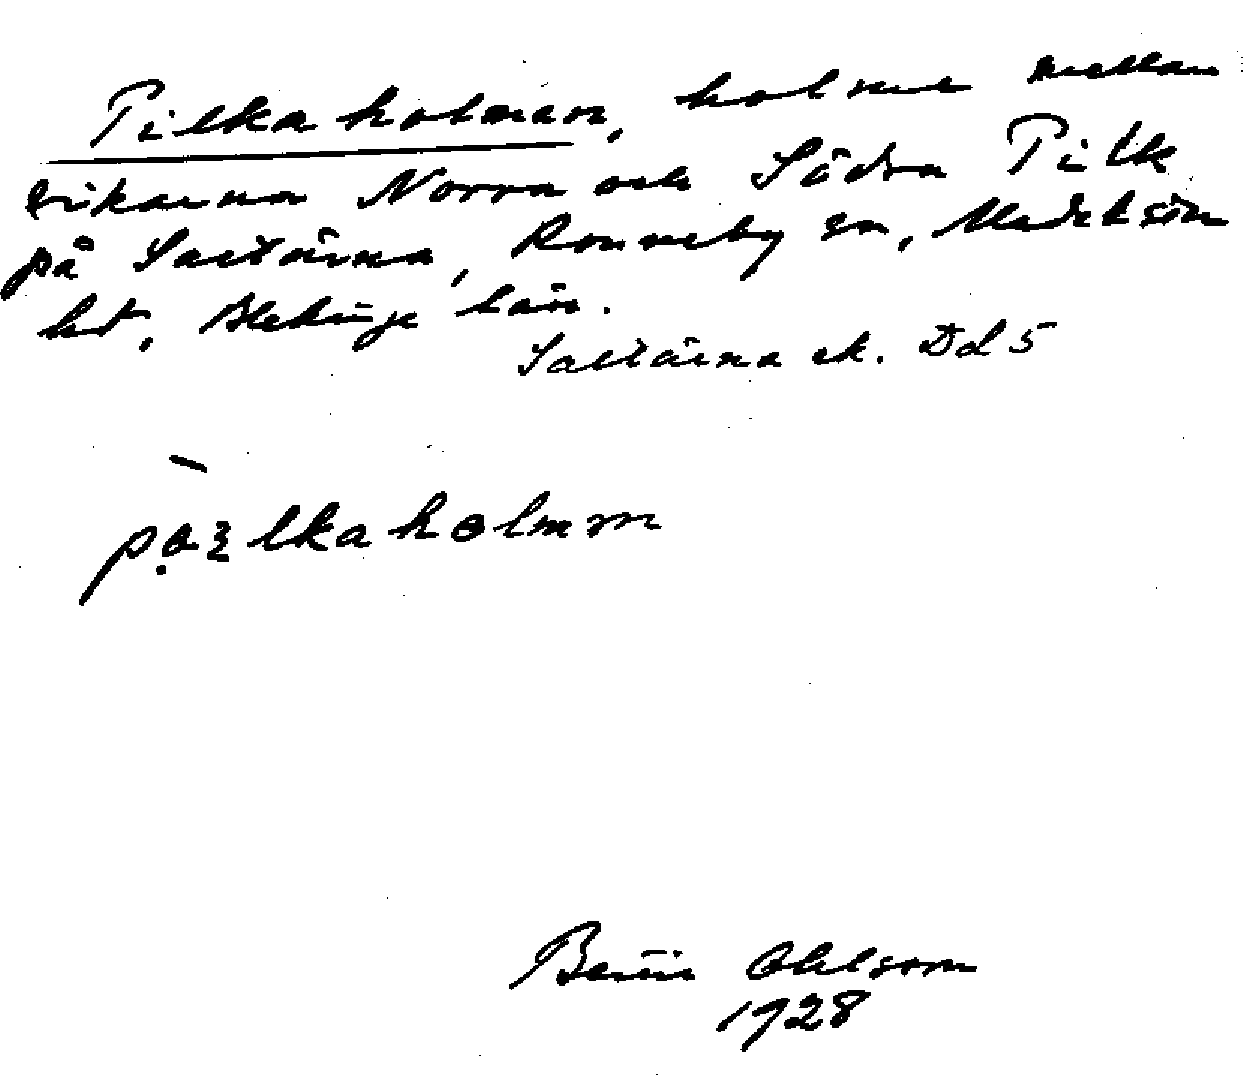 Pilkaholmen, holme mellan
vikarna Norra och Södra Pilk
på Saltärna, Ronneby sn, Medelsta
hd, Blekinge län.
Saltärna ek. Dd5
Ohlsson
1928